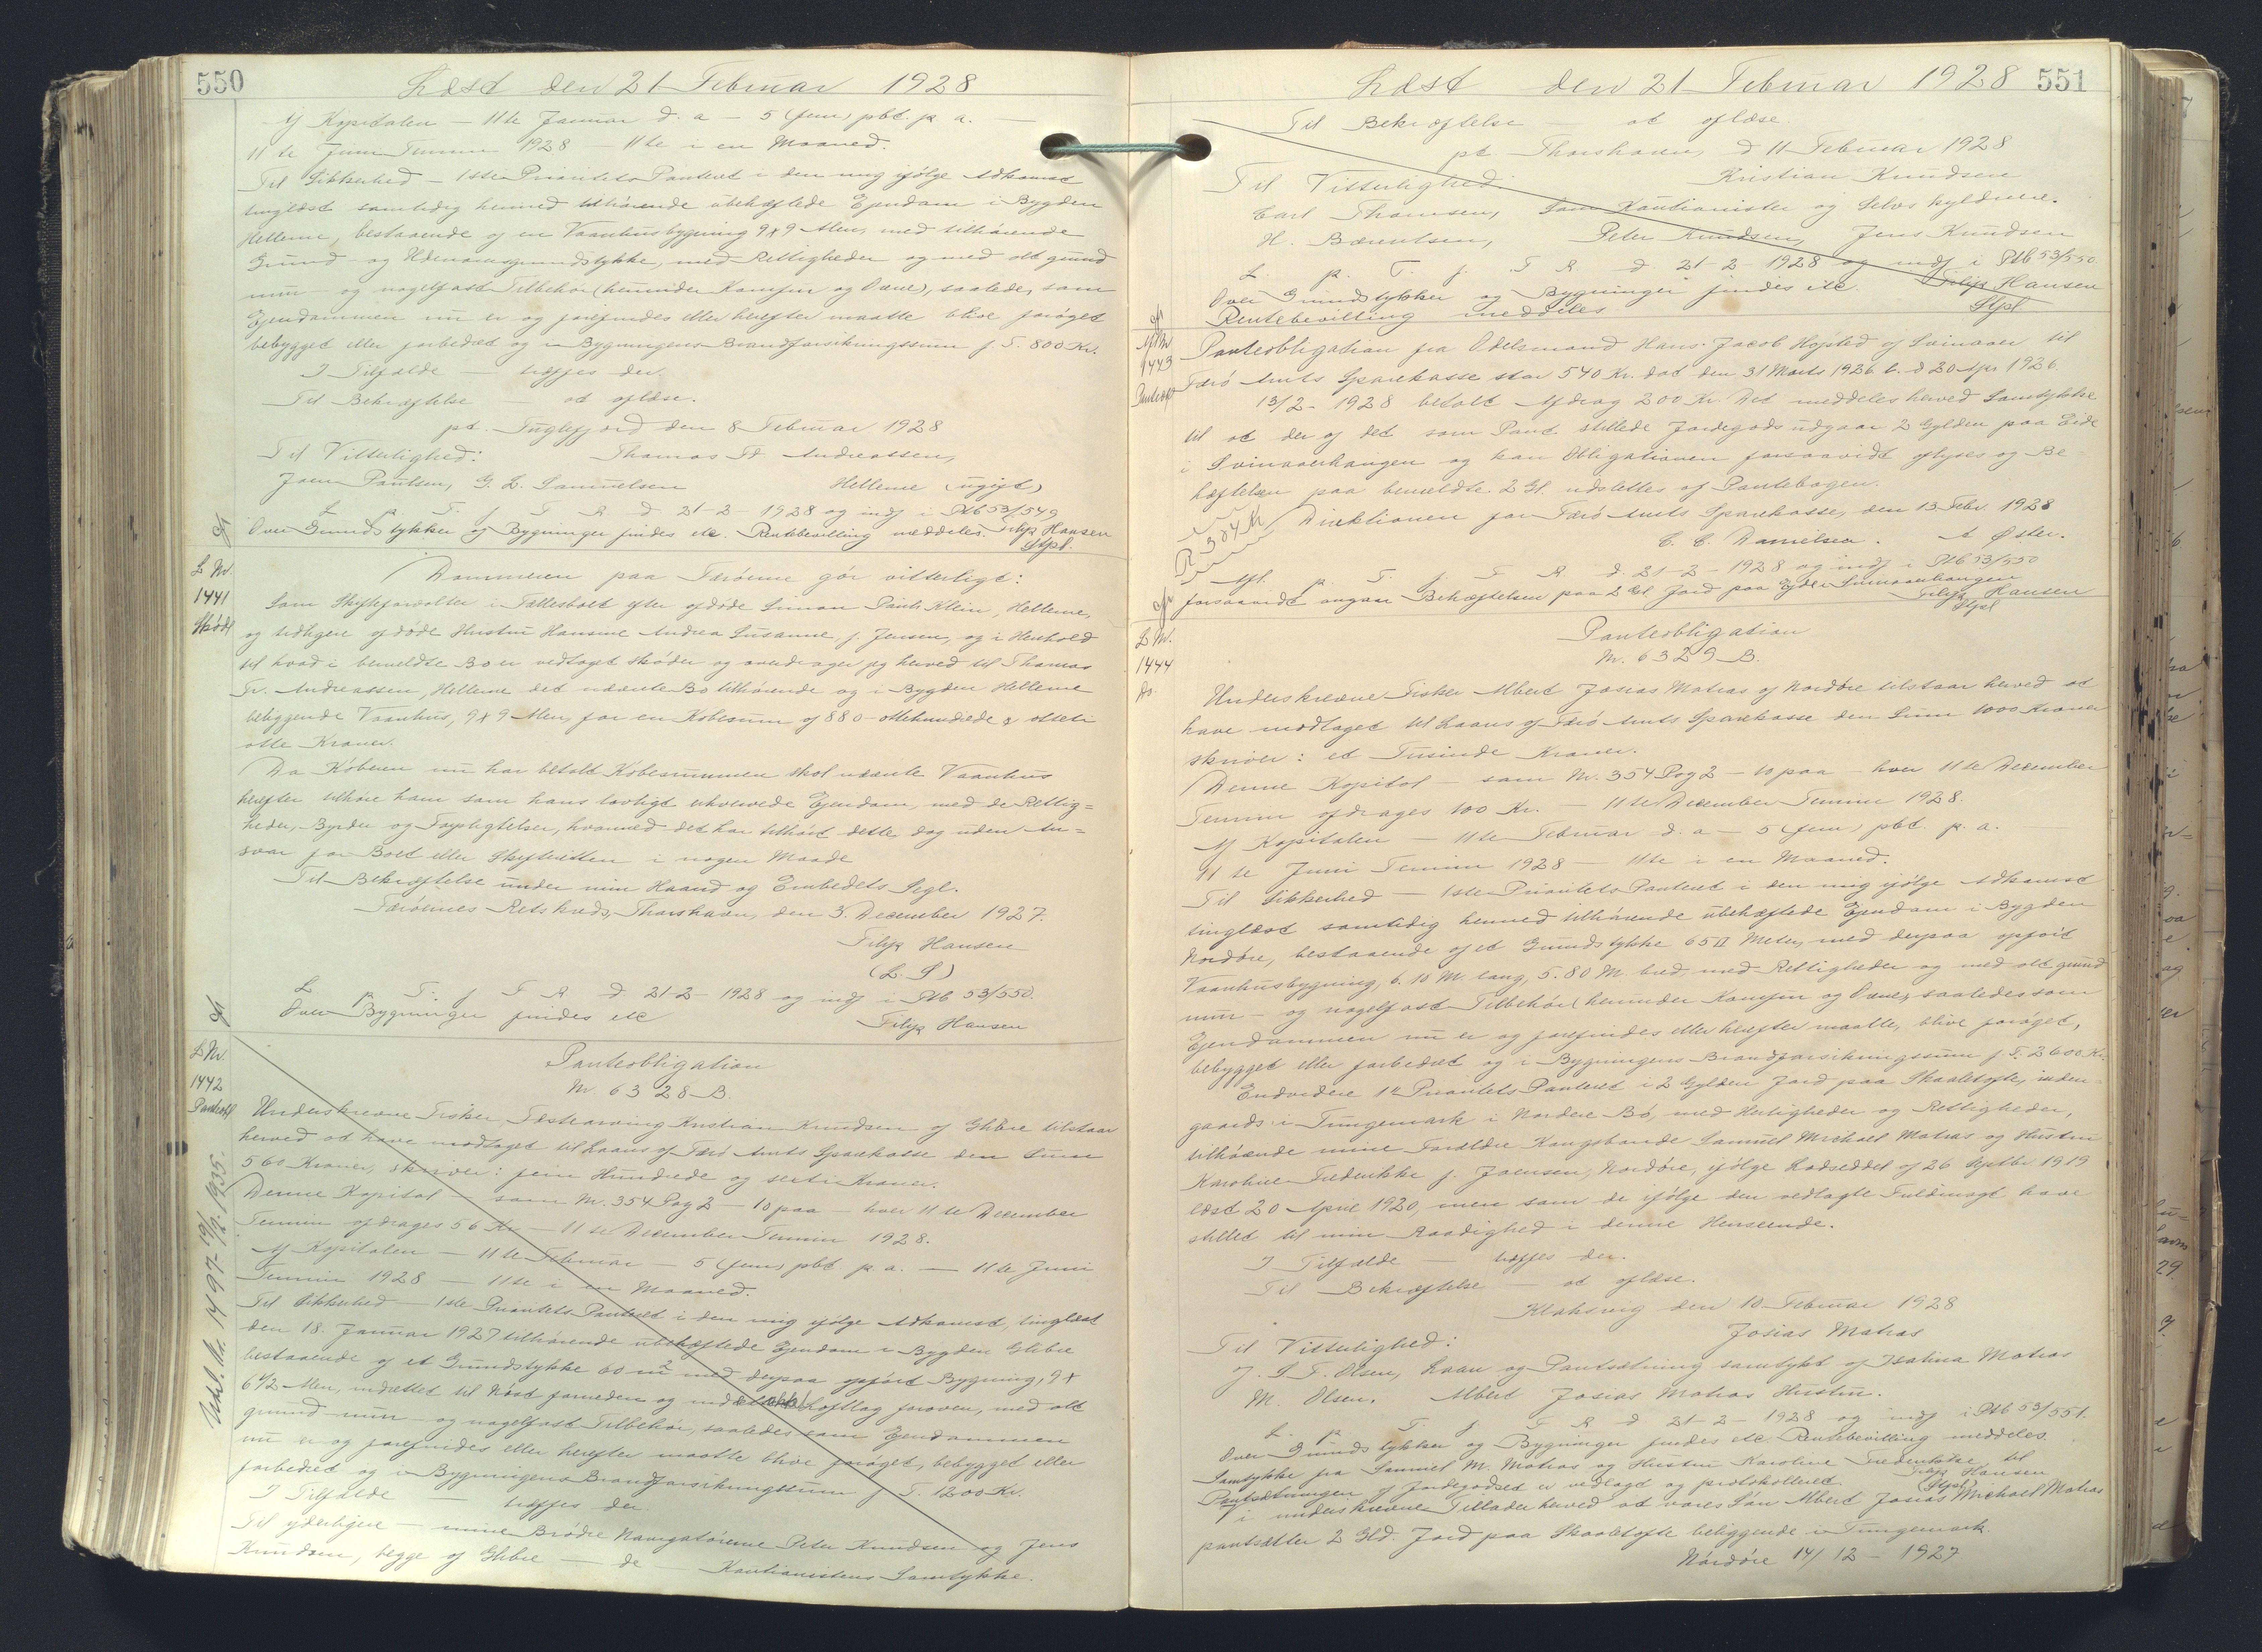 550
Læst den 21 Februar 1928
Af Kapitalen — 11te Januar d. a — 5 (fem) pbt. p. a. —
11te Juni Termin 1928 — 11te i en Maaned.
Til Sikkerhed — 1ste Prioritets Panteret i den mig ifølge Adkomst
tinglæst samtidig hermed tilhørende ubehæftede Ejendom i Bygden
Hellerne, bestaaende af en Vaanhusbygning 9 x 9 Alen, med tilhørende
Grund- og Udenomsgrundstykke, med Rettigheder og med alt grund
mur- og nagelfast Tilbehør (herunder Komfur og Ovne), saaledes, som
Ejendommen nu er og forefindes eller herefter maatte blive forøget
bebygget eller forbedret og i Bygningens Brandforsikringssum f. T. 800 Kr.
I Tilfælde — træffes der.
Til Bekræftelse — at aflæse.
pt. Fuglefjord den 8 Februar 1928
Til Vitterlighed: Thomas Fr. Andreassen,
Joen Poulsen, G. L. Samuelsen Hellerne (ugift)
L p. T. f. F R d 21-2-1928 og indf i Ptb 53/549
Over Grundstykker og Bygninger findes etc. Rentebevilling meddeles. Filip Hansen
Stpl.
L Nr.
1441
Skødt
Dommeren paa Færøerne gör vitterligt:
Som Skifteforvalter i Fællesboet efter afdöde Simon Pauli Klein, Hellerne,
og tidligere afdöde Hustru Hansine Andrea Susanne, f. Jensen, og i Henhold
til hvad i bemeldte Bo er vedtaget skøder og overdrager jeg herved til Thomas
Fr. Andreassen, Hellerne det nævnte Bo tilhørende og i Bygden Hellerne
beliggende Vaanhus, 9 x 9 Alen, for en Købesum af 880 - ottehundrede & otteti
otte Kroner.
Da Køberen nu har betalt Købesummen skal nævnte Vaanhus
herefter tilhøre ham som hans lovligt erhvervede Ejendom, med de Rettig=
heder, Byrder og Forpligtelser, hvormed det har tilhört dette dog uden An=
svar for Boet eller Skifteretten i nogen Maade
Til Bekræftelse under min Haand og Embedets Segl.
Færöernes Retskreds, Thorshavn, den 3. December 1927.
Filip Hansen
(L. S)
L. p. T. f F R d 21-2-1928 og indf i Ptb 53/550.
Over Bygninger findes etc Filip Hansen
L Nr.
1442
Panteobl
Udsl. Nr. 1497-
1935.
Panteobligation
Nr. 6328 B.
Underskrevne Fisker, Festearving Kristian Knudsen af Glibre tilstaar
herved at have modtaget til Laans af Færö Amts Sparekasse den Sum
560 Kroner, skriver: fem Hundrede og seksti Kroner.
Denne Kapital — som Nr. 354 Pag 2 — 10 paa — hver 11te December
Termin afdrages 56 Kr — 11te December Termin 1928.
Af Kapitalen — 11te Februar — 5 (fem) pbt. p. a. — 11te Juni
Termin 1928 — 11te i en Maaned.
Til Sikkerhed — 1ste Prioritets Panteret i den mig ifölge Adkomst, tinglæst
den 18. Januar 1927 tilhörende ubehæftede Ejendom i Bygden Glibre
bestaaende af et Grundstykke 60 m² med derpaa opfört Bygning, 9 x
6 1/2 Alen, indrettet til Nöst forneden og med Loftlag foroven, med alt
grund mur- og nagelfast Tilbehör, saaledes som Ejendommen
nu er og forefindes eller herefter maatte blive foröget, bebygget eller
forbedret og i Bygningens Brandforsikringssum f. T. 1200 Kr.
I Tilfælde — træffes der.
Til yderligere — mine Brødre Navigatörerne Peter Knudsen og Jens
Knudsen, begge af Glibre — de — Kautionistens Samtykke.
Læst den 21 Februar 1928 551
Til Bekræftelse — at aflæse.
pt Thorshavn, d 11 Februar 1928
Til Vitterlighed: Kristian Knudsen
Carl Thomsen, Som Kautionister og Selvskyldnere.
H. Bærentsen, Peter Knudsen, Jens Knudsen
L. p. T. f. F R d. 21-2-1928 og indf i Ptb 53/550.
Over Grundstykker og Bygninger findes etc. Filip Hansen
Rentebevilling meddeles Stpl
1443
Panteobligation fra Odelsmand Hans Jacob Højsted af Svinaaer til
Færö Amts Sparekasse stor 540 Kr. dat den 31 Marts 1926 l. d 20 Apr 1926.
13/2-1928 betalt Afdrag 200 Kr. Det meddeles herved Samtykke
til at der af det som Pant stillede Jordegods udgaar 2 Gylden paa Eide
i Svinaaerhaugen og kan Obligationen forsaavidt aflyses og Be=
hæftelsen paa bemeldte 2 Gl. udslettes af Pantebogen.
Direktionen for Færö Amts Sparekasse, den 13 Febr. 1928
C. C. Danielsen. A Øster.
Afl. p. T. f. F R d. 21-2-1928 og indf i Ptb 53/550
forsaavidt angaar Behæftelsen paa 2 Gl Jord paa Ejde i Svinaaerhaugen
Filip Hansen
Stpl
L Nr.
1444
do.
Panteobligation
Nr. 6329 B.
Underskrevne Fisker Albert Josias Matras af Nordöre tilstaar herved at
have modtaget til Laans af Færö Amts Sparekasse den Sum 1000 Kroner
skriver: et Tusinde Kroner.
Denne Kapital — som Nr. 354 Pag 2 — 10 paa — hver 11te December
Termin afdrages 100 Kr. — 11te December Termin 1928.
Af Kapitalen — 11te Februar d. a — 5 (fem) pbt. p. a.
11te Juni Termin 1928 — 11te i en Maaned.
Til Sikkerhed — 1ste Prioritets Panteret i den mig ifölge Adkomst
tinglæst samtidig hermed tilhørende ubehæftede Ejendom i Bygden
Nordöre, bestaaende af et Grundstykke 65 □ Meter, med derpaa opfört
Vaanhusbygning, 6.10 M. lang, 5.80 M. bred, med Rettigheder og med alt grund
mur- og nagelfast Tilbehør (herunder Komfur og Ovne), saaledes som
Ejendommen nu er og forefindes eller herefter maatte, blive foröget,
bebygget eller forbedret og i Bygningens Brandforsikringssum f. T. 2600 Kr.
Endvidere 1ste Prioritets Panteret i 2 Gylden Jord paa Skaaletofte, inden-
gaards i Tungemark i Nordere Bö, med Herligheder og Rettigheder,
tilhörende mine Forældre Kongsbonde Samuel Michael Matras og Hustru
Karoline Frederikke f. Joensen, Nordöre, ifölge Lodseddel af 26 Septbr 1919
læst 20 April 1920, men som de ifölge den vedlagte Fuldmagt have
stillet til min Raadighed i denne Henseende.
I Tilfælde — træffes der.
Til Bekræftelse — at aflæse.
Klaksvig den 10 Februar 1928
Til Vitterlighed: Josias Matras
J. S. F. Olsen, Laan og Pantsætning samtykt af Isalina Matras
M. Olsen. Albert Josias Matras Hustru.
L. p. T. f. F R d 21-2-1928 og indf i Ptb 53/551.
Over Grundstykker og Bygninger findes etc Rentebevilling meddeles.
Samtykke fra Samuel M. Matras og Hustru Karoline Frederikke til
Pantsætningen af Jordegodset er vedlagt og protokolleret. Filip Hansen
Stpl
Vi underskrevne Tillader herved at vores Sön Albert Josias Michael Matras
pantsætter 2 Gld. Jord paa Skaaletofte beliggende i Tungemark.
Nördöre 14/12-1927